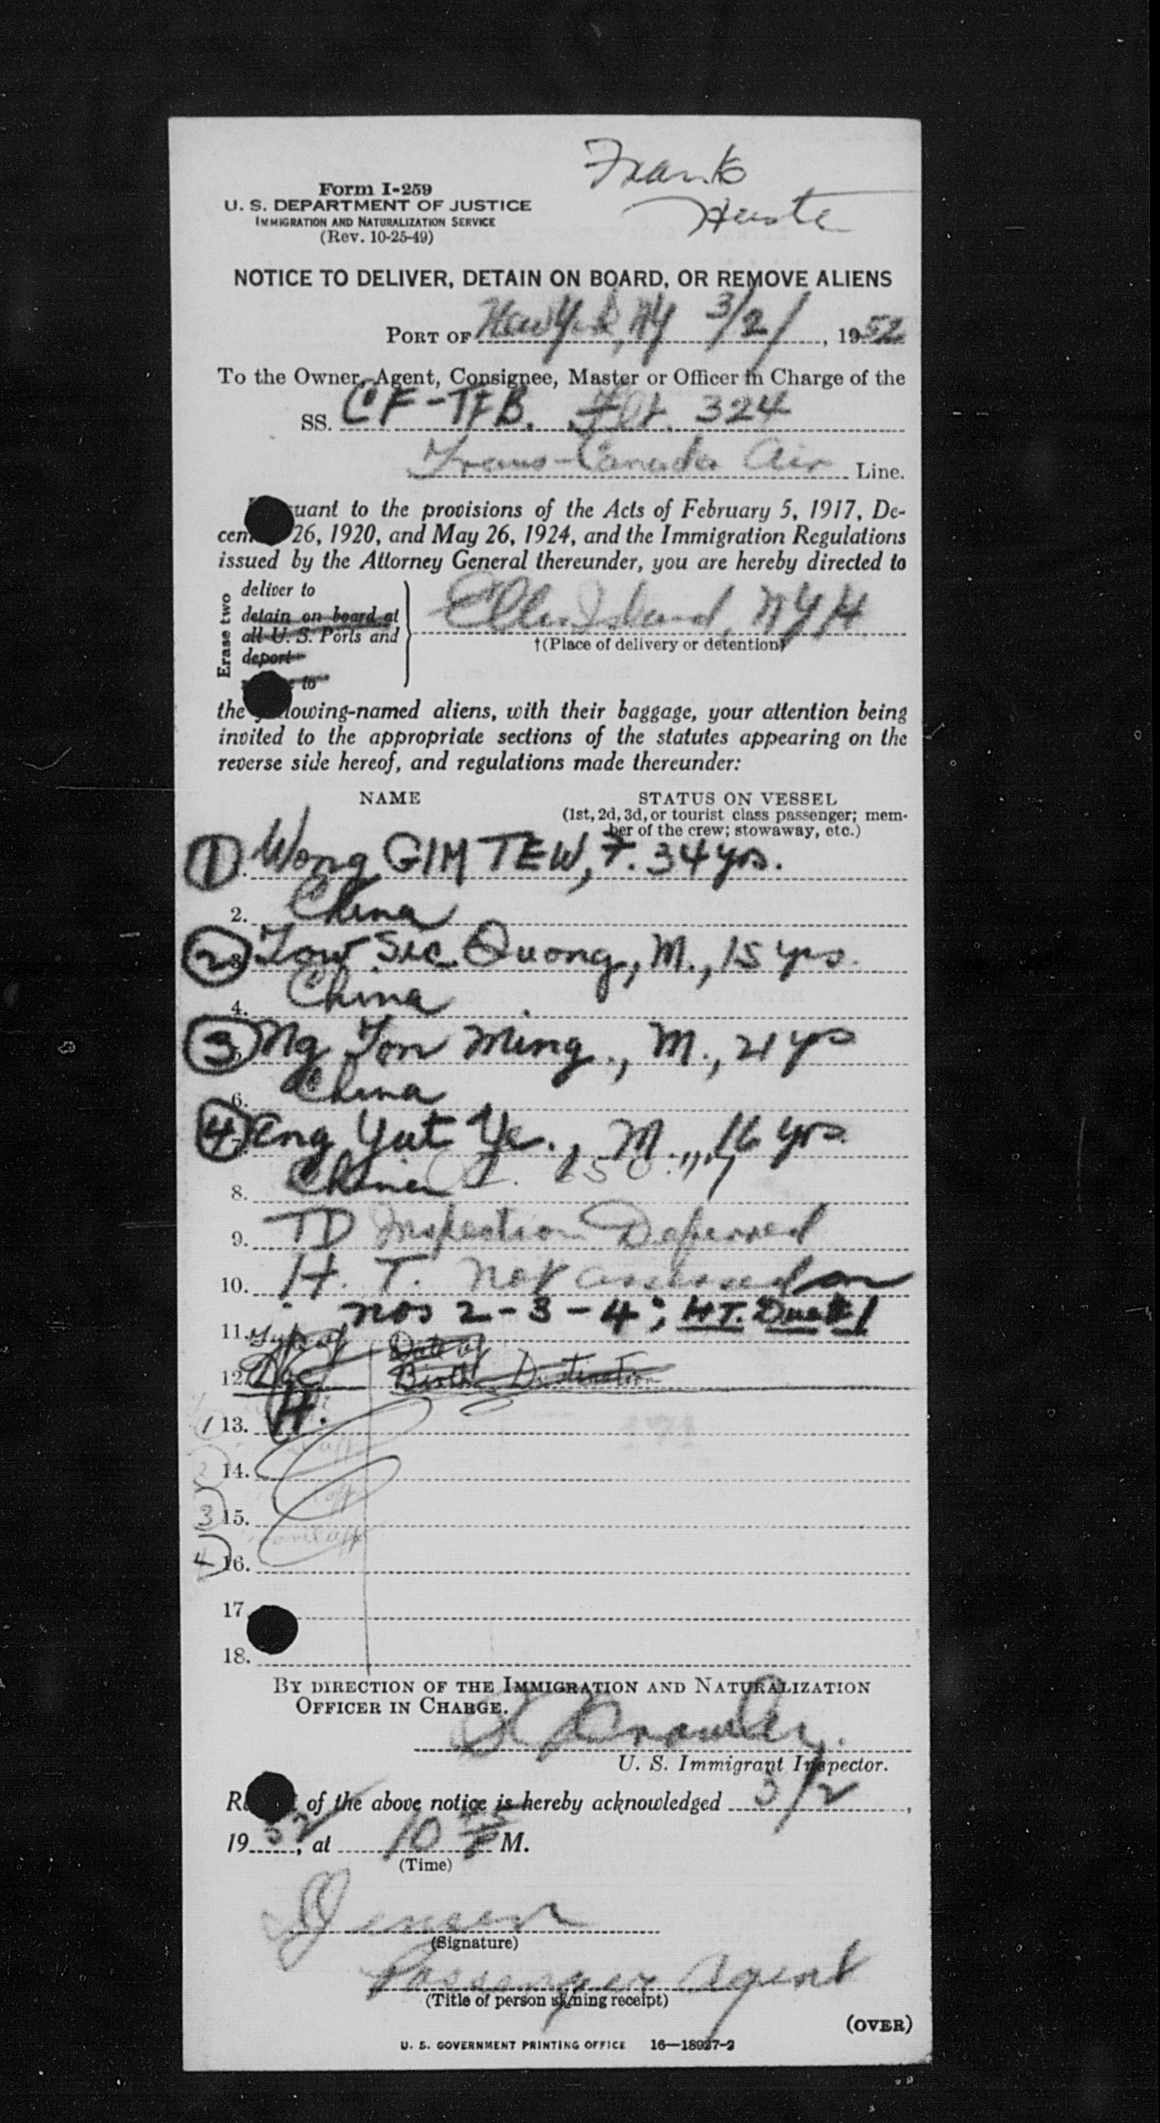 Frank
Form I-259
U. S. DEPARTMENT OF JUSTICE
IMMIGRATION AND NATURALIZATION SERVICE
(Rev. 10-25-49)
NOTICE TO DELIVER, DETAIN ON BOARD, OR REMOVE ALIENS
PORT OF New York, NY 3/2/, 1952
To the Owner, Agent, Consignee, Master or Officer in Charge of the
SS. CF-TFB. Flt. 324
Trans-Canada Air Line.
uant to the provisions of the Acts of February 5, 1917, De-
cem 26, 1920, and May 26, 1924, and the Immigration Regulations
issued by the Attorney General thereunder, you are hereby directed to
Erase two
deliver to
detain on board at
all U. S. Ports and
deport
to
Ellis Island, NYH
†(Place of delivery or detention)
the lowing-named aliens, with their baggage, your attention being
invited to the appropriate sections of the statutes appearing on the
reverse side hereof, and regulations made thereunder:
NAME STATUS ON VESSEL
(1st, 2d, 3d, or tourist class passenger; mem-
ber of the crew; stowaway, etc.)
1 Wong GIM TEW, F. 34 yrs.
2. China
2 Tow Sic Quong, M., 15 yrs.
4. China
3 Ng Ton Ming., M., 21 yrs
6. China
4 Eng Yut Ye., M., 16 yrs.
8. China
9. TD Inspection Deferred
10. H. T. not assessed on
nos 2-3-4; HT. Due #1
11. Type of Date of
12. Doc Birth Destination
1 13. H.
2 14.
3 15.
4 16.
17.
18.
BY DIRECTION OF THE IMMIGRATION AND NATURALIZATION
OFFICER IN CHARGE.
U. S. Immigrant Inspector.
R of the above notice is hereby acknowledged 3/2,
1952, at 10 45 P M.
(Time)
Jensen
(Signature)
Passenger Agent
(Title of person signing receipt)
(OVER)
U. S. GOVERNMENT PRINTING OFFICE 16—18937-2